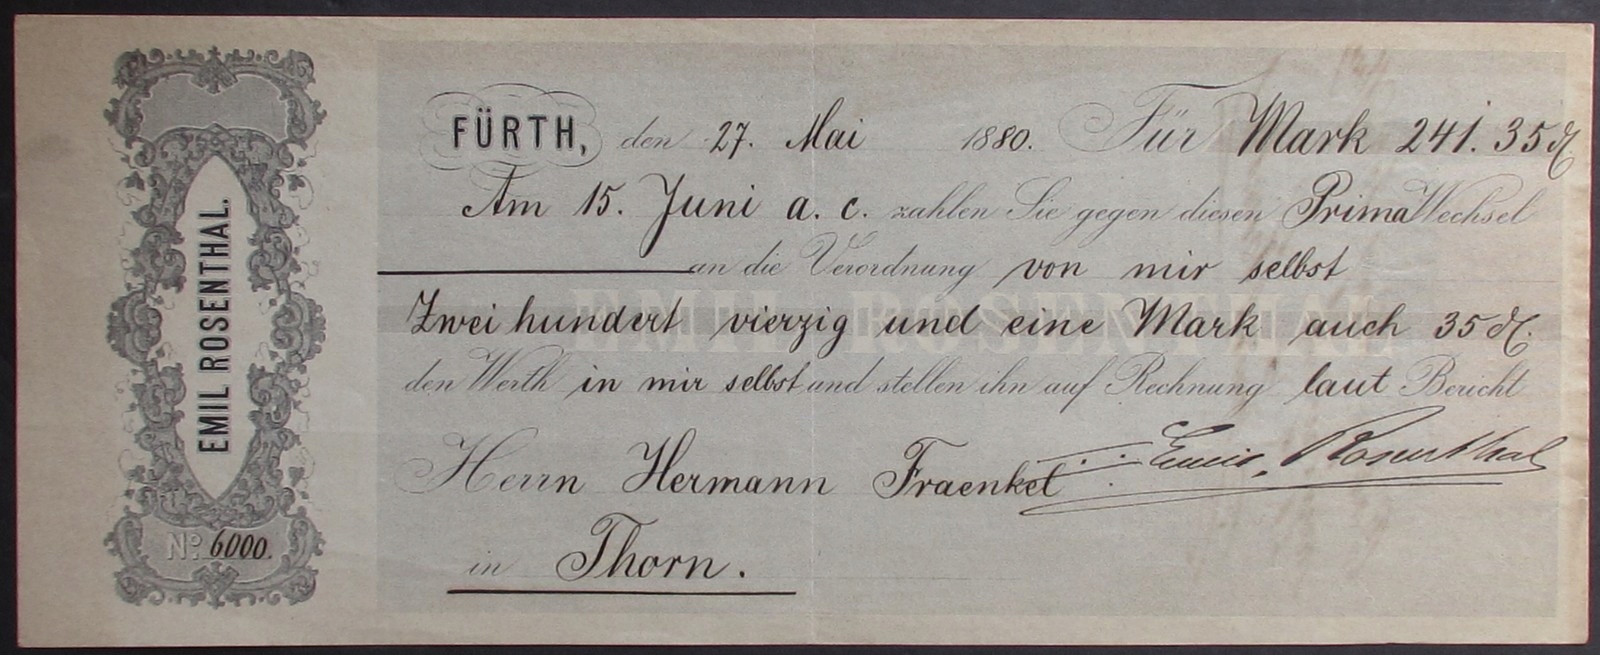 EMIL ROSENTHAL.
No. 6000.
FÜRTH, den 27. Mai 1880. Für Mark 241. 35 ₰
Am 15. Juni a. c. zahlen Sie gegen diesen Prima Wechsel
an die Verordnung von mir selbst
EMIL ROSENTHAL
Zwei hundert vierzig und eine Mark auch 35 ₰.
den Werth in mir selbst und stellen ihn auf Rechnung laut Bericht
Herrn Hermann Fraenkel Emil Rosenthal
in Thorn.